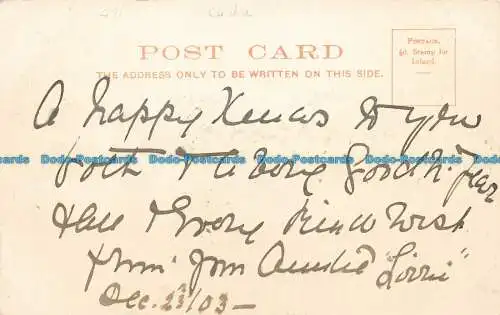 POST CARD
THE ADDRESS ONLY TO BE WRITTEN ON THIS SIDE.
POSTAGE.
½d. Stamp for
Inland.
A happy Xmas to you
both & a very good N. Year
& every kind wish
from Auntie "Lizzie"
Dec. 23/03 —
Dodo-Postcards Dodo-Postcards Dodo-Postcards Dodo-Postcards Dodo-Postcards